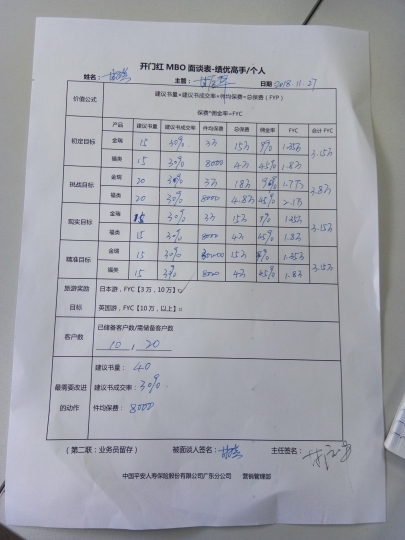 开门红 MBO 面谈表-绩优高手/个人
姓名： 主管： 日期 2018.11.27
价值公式 建议书量×建议书成交率×件均保费=总保费（FYP）
保费*佣金率=FYC
产品 建议书量 建议书成交率 件均保费 总保费 佣金率 FYC 合计 FYC
初定目标 金瑞 15 30% 3万 15万 9% 1.35万 3.15万
福类 15 30% 8000 4万 45% 1.8万
挑战目标 金瑞 20 30% 3万 18万 9% 1.7万 3.8万
福类 20 30% 8000 4.8万 45% 2.1万
现实目标 金瑞 15 30% 3万 15万 9% 1.35万 3.15万
福类 15 30% 8000 4万 45% 1.8万
精准目标 金瑞 15 30% 30000 15万 9% 1.35万 3.15万
福类 15 30% 8000 4万 45% 1.8万
旅游奖励目标 日本游，FYC【3万，10万】
英国游，FYC【10万，以上】
客户数 已储备客户数/需储备客户数
10 , 20
最需要改进的动作 建议书量： 40
建议书成交率： 30%
件均保费： 8000
（第二联：业务员留存） 被面谈人签名： 主任签名：
中国平安人寿保险股份有限公司广东分公司 营销管理部